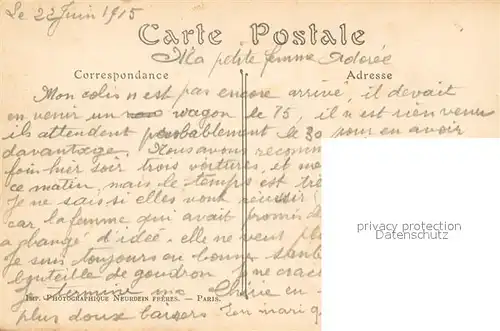 Le 22 Juin 1915
Carte Postale
Ma petite femme Adorée
Correspondance
Adresse
Mon colis n est pas encore arrivé, il devait
en venir un wagon le 15, il n est rien venu
ils attendent probablement le 30 pour en avoir
davantage. Nous avons recomm
foin hier soir trois voitures, et me
ce matin, mais le temps est trè
Je ne sais si elles vont réussir
car la femme qui avait promis d
a changé d'idée. elle ne veut plu
Je suis toujours en bonne santé
bouteille de goudron je ne crac
Je termine ma Chérie en
Imp. Photographique Neurdein Frères. — Paris.
plus doux baisers Ton mari q
privacy protection
Datenschutz